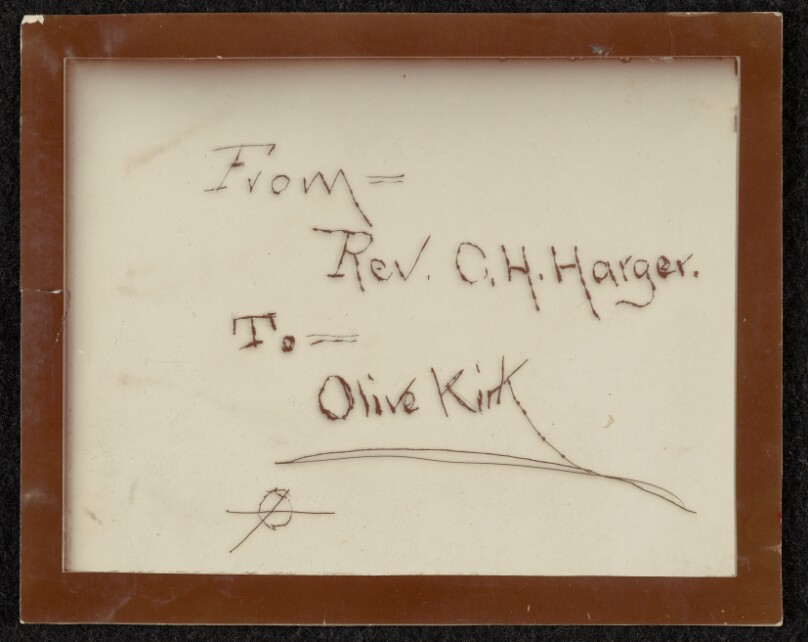 From=
Rev. C.H. Harger.
To.=
Olive Kirk